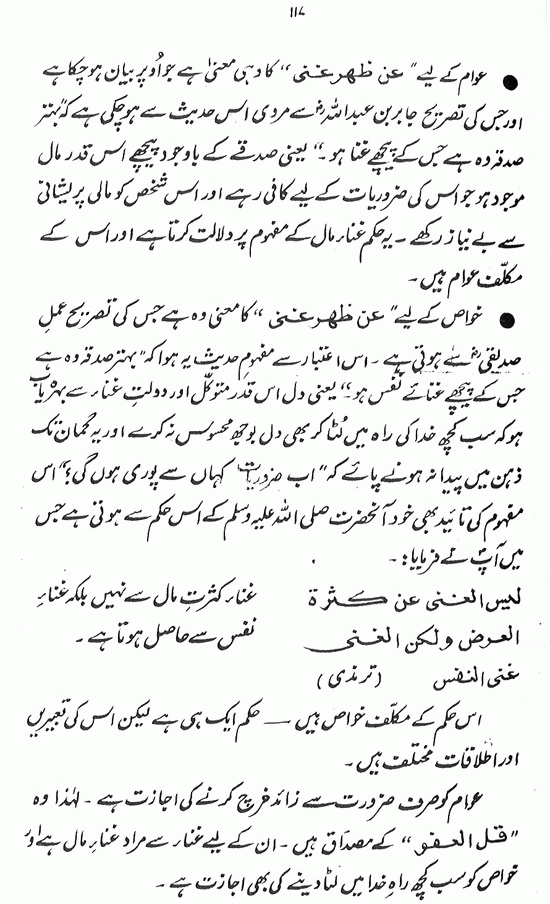 ۱۱۷
● عوام کے لیے "عن ظهر غنى" کا وہی معنیٰ ہے جو اوپر بیان ہو چکا ہے
اور جس کی تصریح جابر بن عبد اللہؓ سے مروی اس حدیث سے ہو چکی ہے کہ "بہتر
صدقہ وہ ہے جس کے پیچھے غنا ہو۔" یعنی صدقے کے باوجود پیچھے اس قدر مال
موجود ہو جو اس کی ضروریات کے لیے کافی رہے اور اس شخص کو مالی پریشانی
سے بے نیاز رکھے۔ یہ حکم غناء مال کے مفہوم پر دلالت کرتا ہے اور اس کے
مکلّف عوام ہیں۔
● خواص کے لیے "عن ظهر غنى" کا معنیٰ وہ ہے جس کی تصریح عملِ
صدیقیؓ سے ہوتی ہے۔ اس اعتبار سے مفہومِ حدیث یہ ہوا کہ "بہتر صدقہ وہ ہے
جس کے پیچھے غنائے نفس ہو" یعنی دل اس قدر متوکّل اور دولتِ غناء سے بہرہ یاب
ہو کہ سب کچھ خدا کی راہ میں لُٹا کر بھی دل بوجھ محسوس نہ کرے اور یہ گمان تک
ذہن میں پیدا نہ ہونے پائے کہ "اب ضروریات کہاں سے پوری ہوں گی؟" اس
مفہوم کی تائید بھی خود آنحضرت صلی اللہ علیہ وسلم کے اس حکم سے ہوتی ہے جس
میں آپؐ نے فرمایا:۔
ليس الغنى عن كثرة غناء کثرتِ مال سے نہیں بلکہ غناءِ
العرض ولكن الغنى نفس سے حاصل ہوتا ہے۔
غنى النفس (ترمذی)
اس حکم کے مکلّف خواص ہیں — حکم ایک ہی ہے لیکن اس کی تعبیریں
اور اطلاقات مختلف ہیں۔
عوام کو صرف ضرورت سے زائد خرچ کرنے کی اجازت ہے۔ لہٰذا وہ
"قل العفو" کے مصداق ہیں۔ ان کے لیے غناء سے مراد غناءِ مال ہے اور
خواص کو سب کچھ راہِ خدا میں لٹا دینے کی بھی اجازت ہے۔